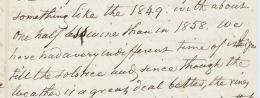 something like the 1849. with about
one half less wine than in 1858. We
have had a very indifferent time of it
till the solstice and, since though the
weather is a great deal better, the vines